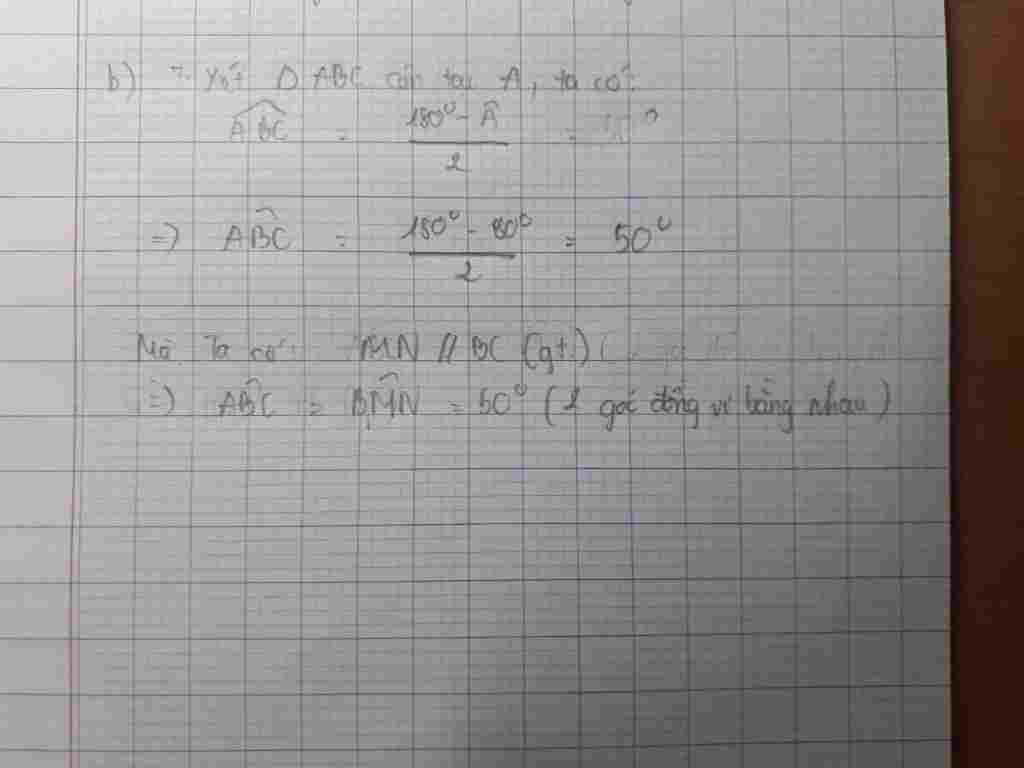 b) Xét Δ ABC cân tại A, ta có:
ABC^ = (180° - Â) / 2 =
=> AB̂C = (180° - 80°) / 2 = 50°
Mà Ta có: MN // BC (gt)
=> AB̂C = BM̂N = 50° (2 góc đồng vị bằng nhau)